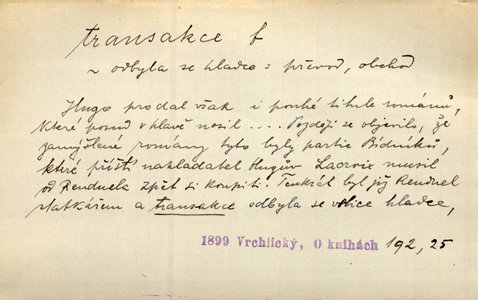 transakce f
~ odbyla se hladce = převod, obchod
Hugo prodal však i pouhé titule románů,
které posud v hlavě nosil .... Později se objevilo, že
zamýšlené romány tyto byly partie Bídníků,
které příští nakladatel Hugův Lacroix musil
od Renduela zpět si koupiti. Tenkrát byl již Renduel
statkářem a transakce odbyla se velice hladce,
1899 Vrchlický, O knihách 192, 25